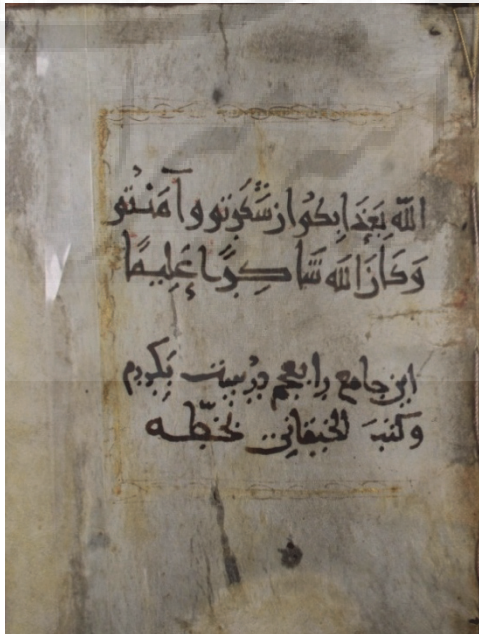 الله بِعَذَابِكُم ان شَكَرْتُم وآمَنْتُم
وَكَانَ الله شَاكِرًا عَلِيمًا
اين جامع را بعجم درست بَكردم
وكتبَ الخيقانِي بخطّه